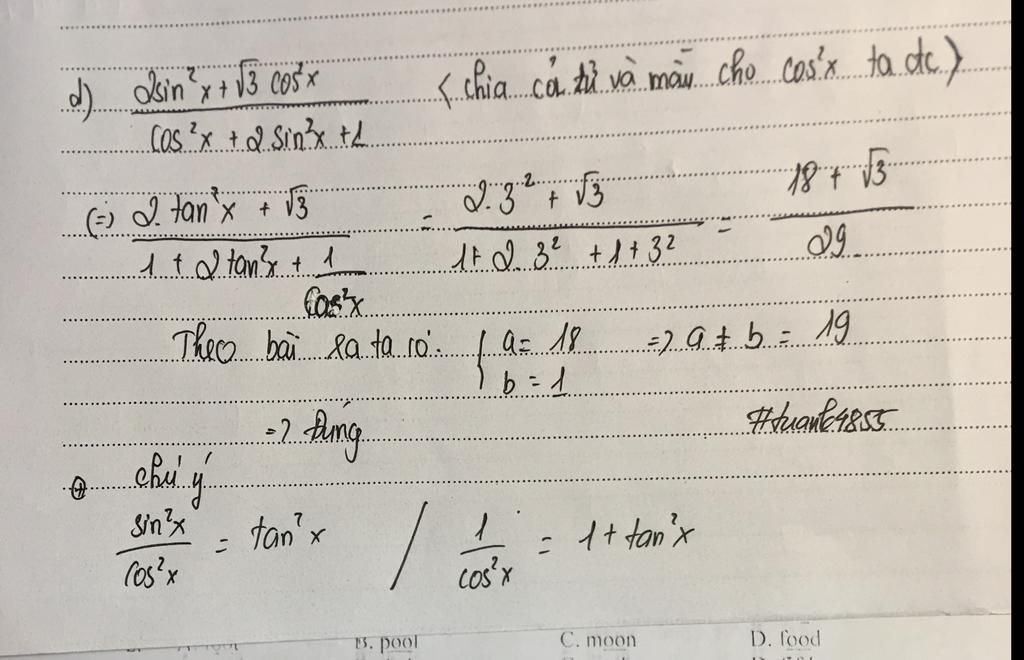 d) (2sin²x + √3 cos²x)/(cos²x + 2 sin²x + 1) < chia cả tử và mẫu cho cos²x ta dc >
(=) (2. tan²x + √3)/(1 + 2 tan²x + 1/cos²x) = (2. 3² + √3)/(1 + 2. 3² + 1 + 3²) = (18 + √3)/29
Theo bài ra ta có: { a = 18 => a + b = 19
b = 1
=> Đúng #tuank4855
⊕ chú ý
sin²x/cos²x = tan²x / 1/cos²x = 1 + tan²x
B. pool C. moon D. food